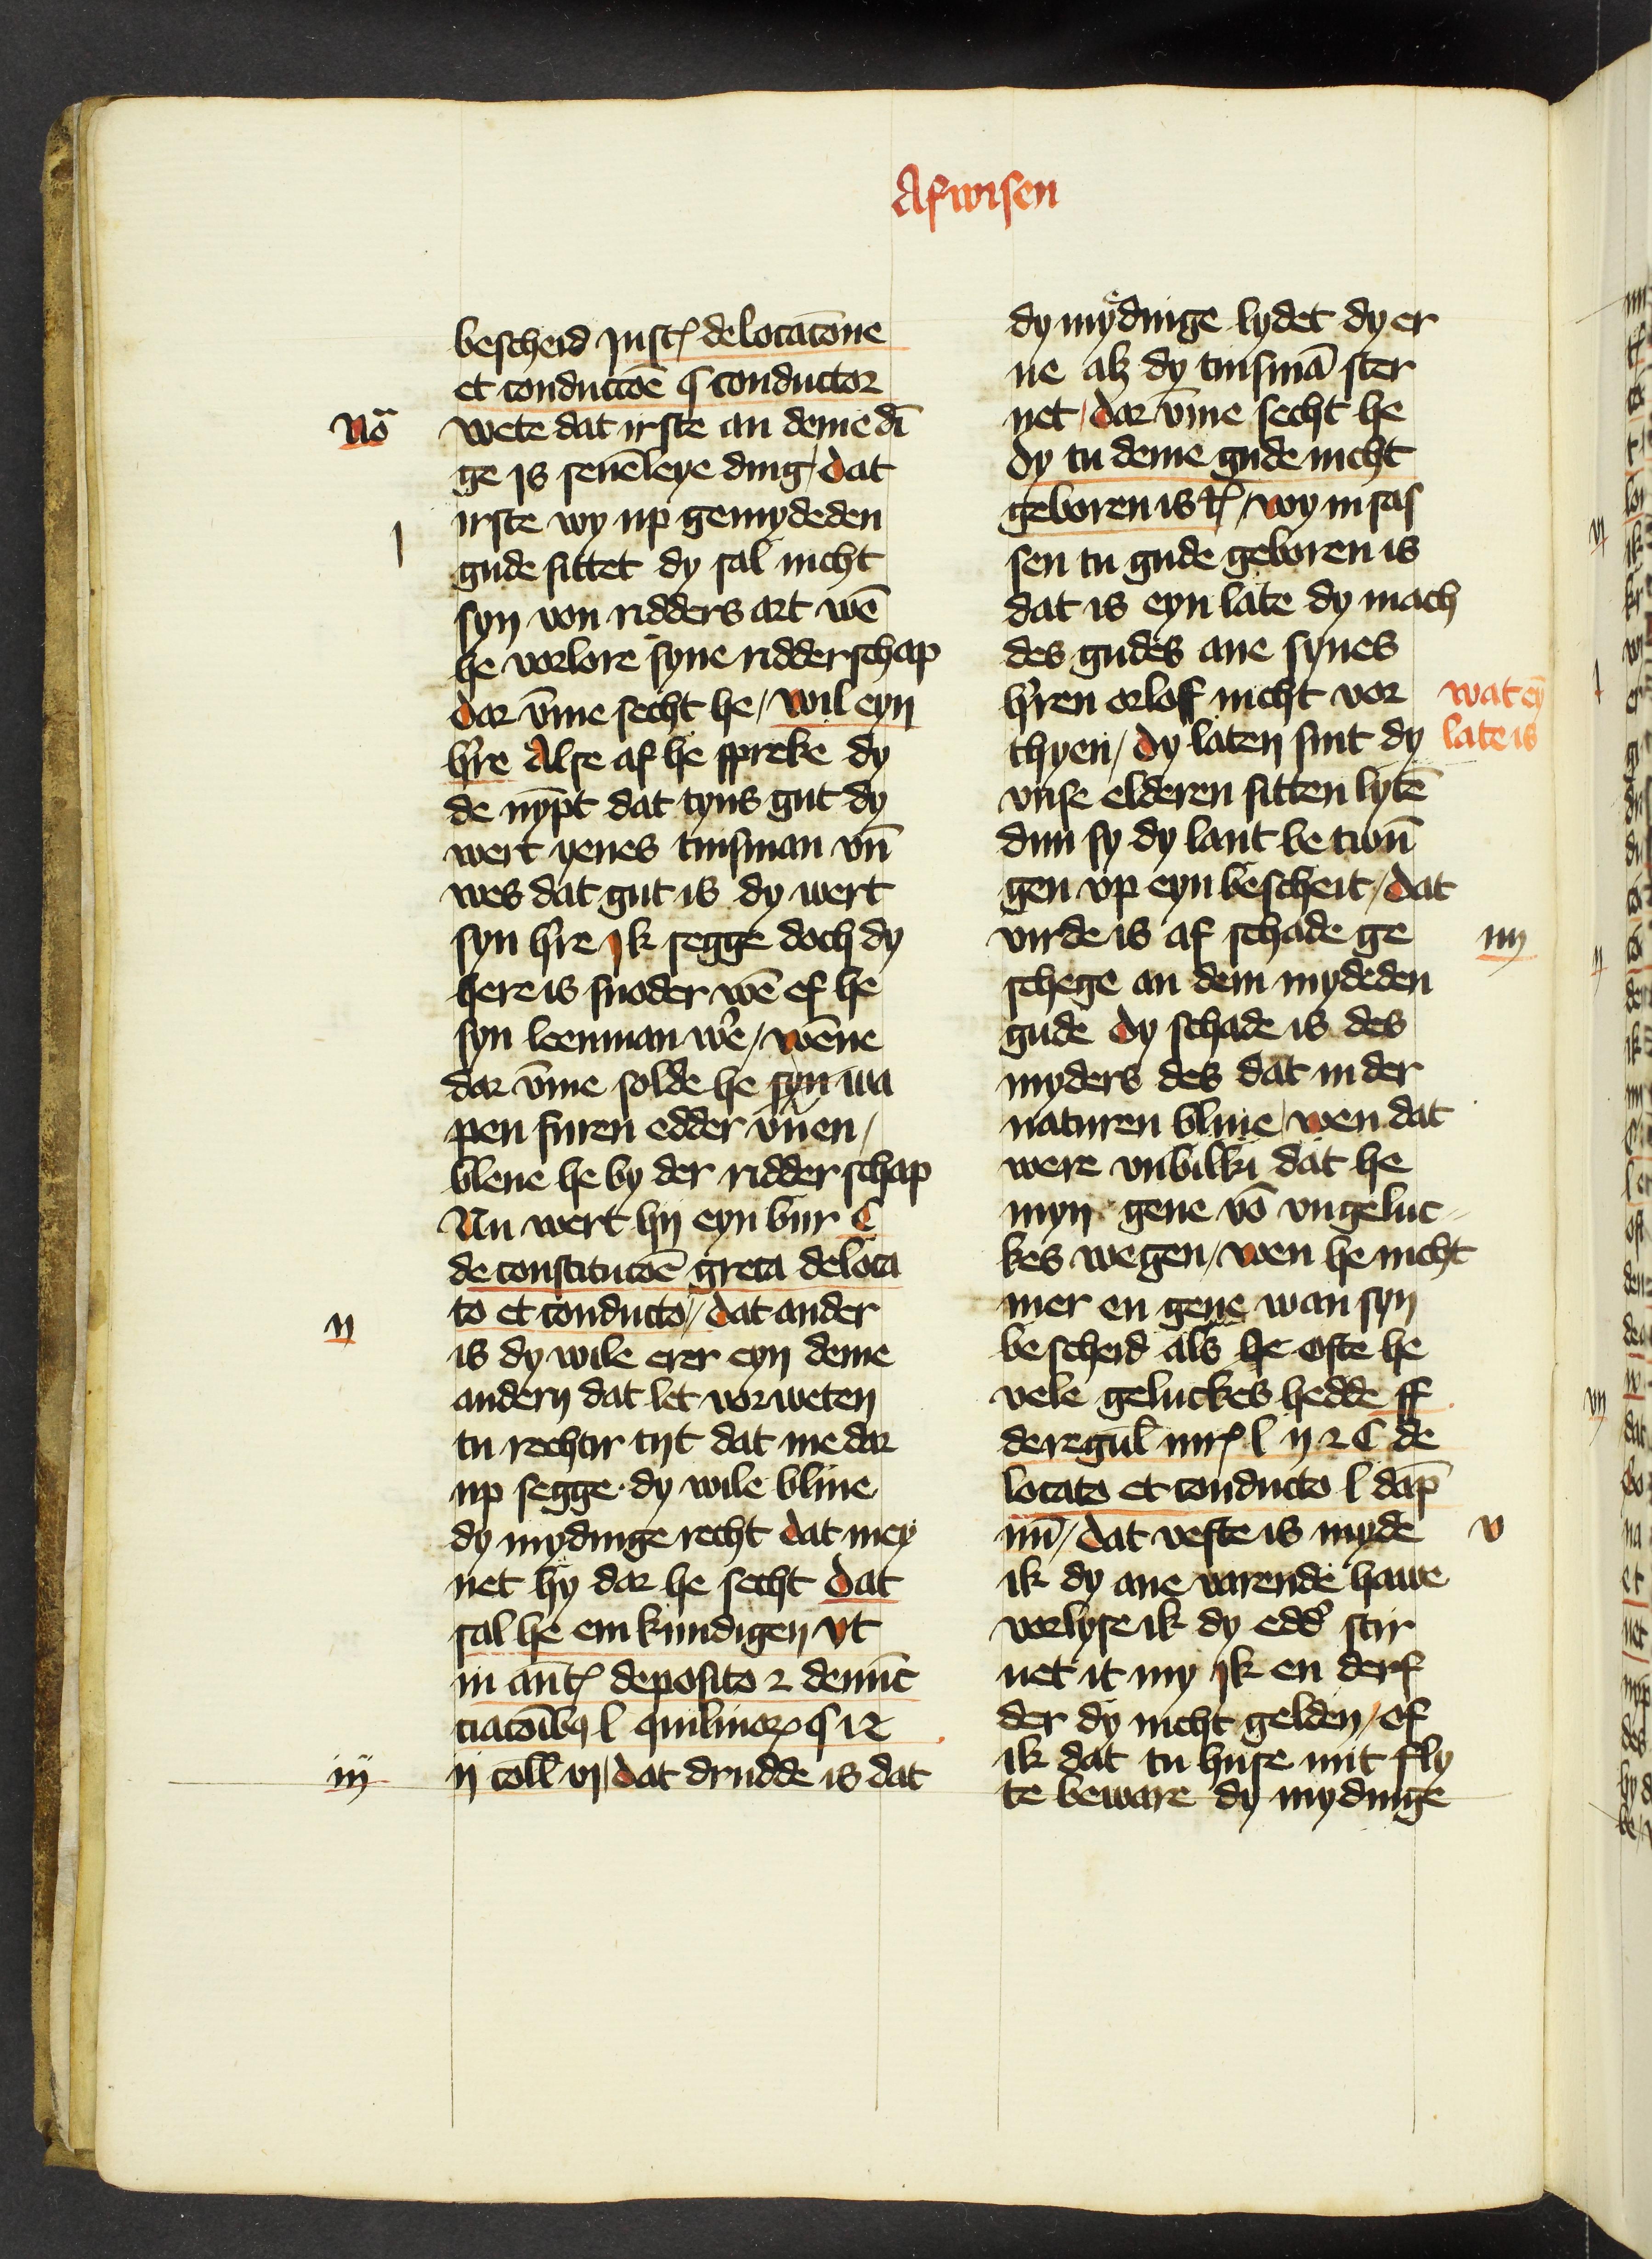 Afwisen
bescheid Inst͛ de locacōne
et conductōe § conductor
Nōᵃ
wete dat irste an deme dī
ge is seuēleye ding / dat
irste wy up gemydeden
j
gude sittet dy sal nicht
syn von ridders art wē
he vorlore syne ridderschap
dar v̄me secht he / wil eyn
h're Alse af he spreke dy
de nȳpt dat tyns gut dy
wert yenes tinsman vn̄
wes dat gut is dy wert
syn h're Jk segge doch dy
here is snoder wē ef he
syn leenman w'e / wēne
dar v̄me solde he syn wa
pen furen edder v̄uen /
bleue he by der ridderschap
Nu wert hy eyn bur C
de constitucōē greca de loca
to et conducto / dat ander
ij
is dy wile erer eyn deme
andern dat let vor weten
tu rechtir tyt dat me dar
up segge dy wile bliue
dy mydinge recht dat mey
net hy dar he secht dat
sal he em kundigen vt
in aūt͛ deposito ⁊ denūc
ciacōībꝯ l quilinoꝝ § i ⁊
ij coll vj / dat drudde is dat
iij
dy mydinge lydet dy er
ne alz dy tinsmā ster
net / dar v̄me secht he
dy tu deme gude nicht
geboren is ⁊c͛ / wy in sas
sen tu gude geboren is
dat is eyn late dy mach
des gudes ane synes
h'ren orloff nicht vor
wat eȳ
thyen / dy laten sint dy
late is
vnse elderen sitten lytē
dun sy dy lant be twū
gen vp eyn bescheit / dat
virde is af schade ge
iiij
schege an dem mydeden
gude dy schade is des
myders des dat in der
naturen bliue / wen dat
were vnbilki dat he
myn gene vō vngeluc
kes wegen / wen he nicht
mer en gene wan syn
bescheid als he ofte he
vele geluckes hedde ff
de regul' iur͛ l ij ⁊ C de
locato et conducto l dāp
nū / dat vefte is myde
v
ik dy ane varende haue
vorlyse ik dy edd' stir
uet it my Jk en derf
der dy nicht gelden / of
ik dat tu huse mit fly
te beware dy mydinge